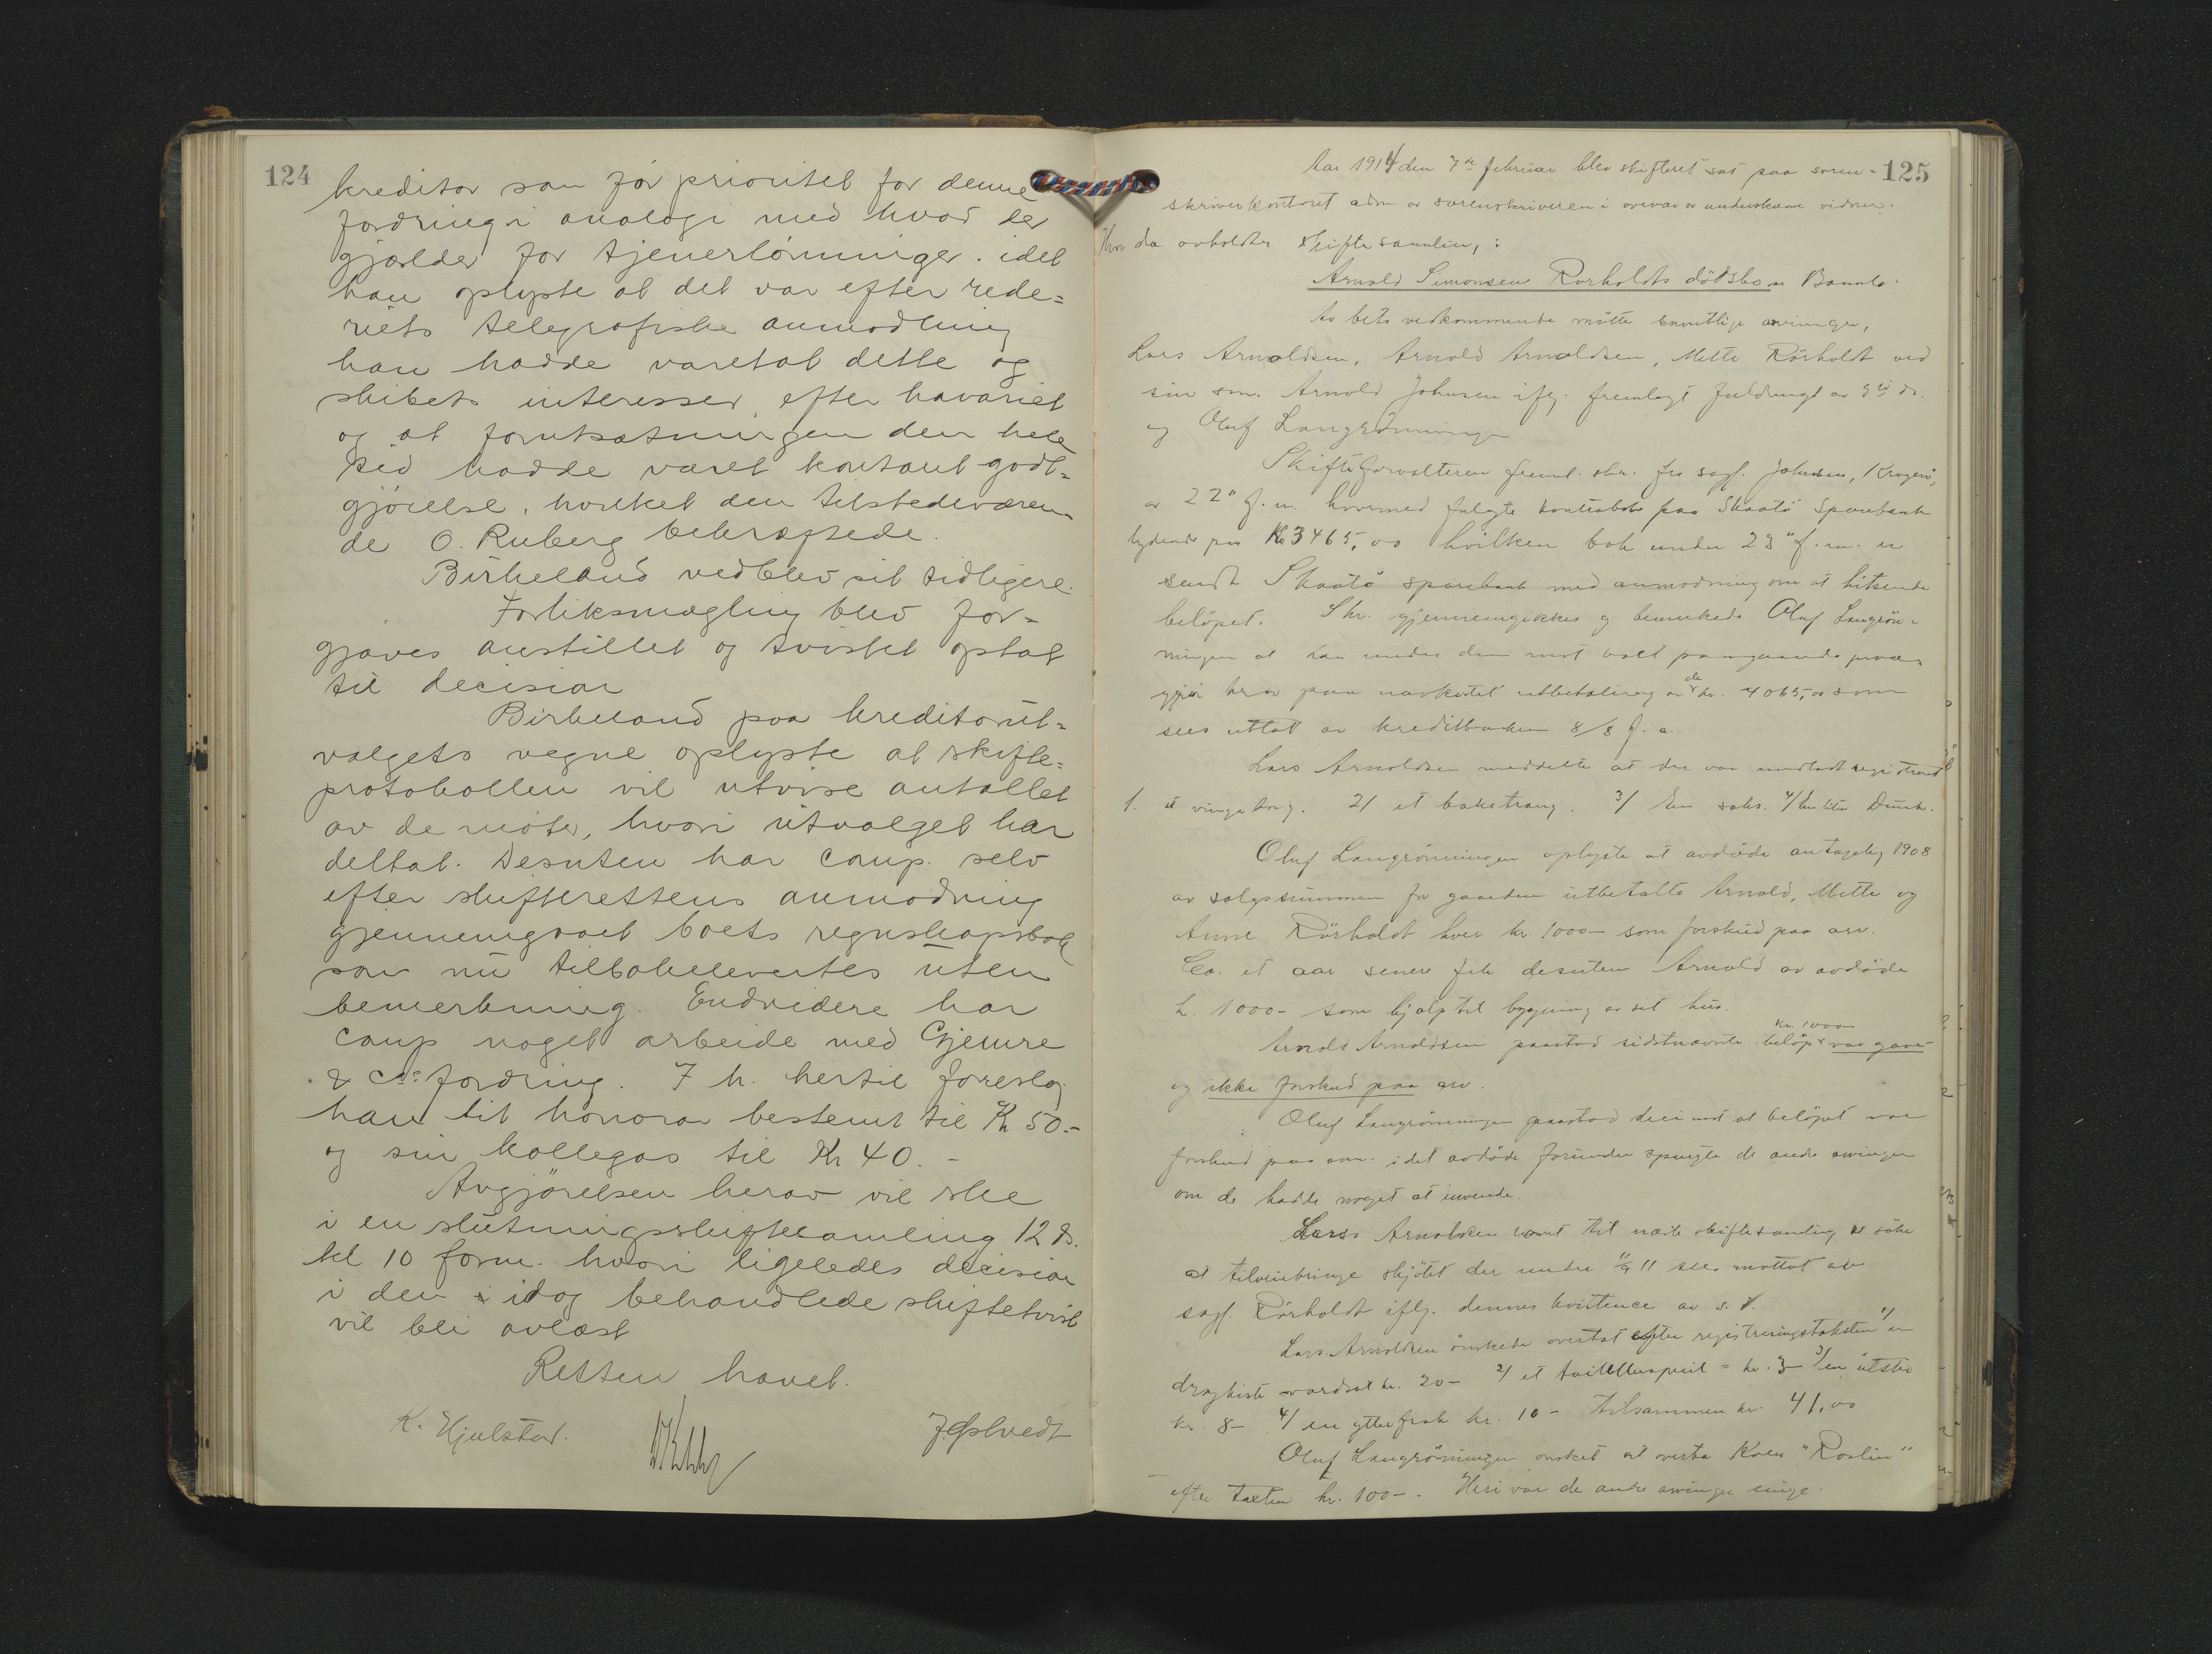 124
kreditor som før prioritet for denne
fordring i analogi med hvad der
gjælder for tjenerlønninger. idet
han oplyste at det var efter rede=
riets telegrafiske anmodning
han hadde varetat dette og
skibets interesser, efter havariet
og at forutsætningen den hele
tid hadde været kontant godt=
gjörelse, hvilket den tilstedeværen-
de O. Ruberg bekræftede.
Birkeland vedblev sit tidligere.
Forliksmægling blev for=
gjæves anstillet og tvistet optat
til decision
Birkeland paa kreditorut=
valgets vegne oplyste at skifte=
protokollen vil utvise antallet
av de møter, hvori utvalget har
deltat. Desuten har comp. selv
efter skifterettens anmodning
gjennemgaaet boets regnskapsbok
som nu tilbakelevertes uten
bemerkning. Endvidere har
comp noget arbeide med Gjemre
& Cos fordring. I h. hertil foreslog
han sit honorar bestemt til Kr 50.-
og sin kollegas til Kr 40.-
Avgjörelsen herav vil ske
i en slutningsskiftesamling 12 ds.
kl 10 form. hvori ligeledes decision
i den idag behandlede skiftetvist
vil bli avlæst
Retten hævet.
K. Hjulstad.
125
Aar 1914 den 7de februar blev skifteret sat paa soren-
skriverkontoret adm. av sorenskriveren i overvær av underskrevne vidner.
Hvor da avholdtes skiftesamling i
Arnold Simonsen Rørholdts dödsbo av Bamle.
Av bets vedkommende mötte samtlige arvinger,
Lars Arnoldsen, Arnold Arnoldsen, Mette Rörholdt ved
sin søn Arnold Johnsen iflg. fremlagt fuldmagt av ds.
og Oluf Langrönningen
Skifteforvalteren freml. skr. fra sagf. Johnsen, Kragerö,
av 22" f. m. hvormed fulgte kontrabok paa Skaatö Sparebank
lydende paa Kr 3465,00 hvilken bok under 23" f. m. er
sendt Skaatö sparebank med anmodning om at hitsende
belöpet. Skr. gjennemgikkes og bemerkede Oluf Langrön=
ningen at han under den mot pangaaende proces
gjör krav paa utbetaling av de kr. 4065,00 som
sees uttat av kreditbanken 8/8 f. a.
Lars Arnoldsen meddelte at der var undladt registreret
1. et vingetrug. 2/ et bakstraug. 3/ En saks. 4/ En liten Dunk.
Oluf Langrönningen oplyste at avdöde antagelig 1908
av salgssummen for gaarden utbetalte Arnold, Mette og
Anne Rörholdt hver kr. 1000- som forskud paa arv.
Ca. et aar senere fik desuten Arnold av avdöde
k. 1000- som hjælp til bygning av sit hus.
kr. 1000-
Arnold Arnoldsen paastod sidstnævnte belöp var gave
og ikke forskud paa arv.
Oluf Langrönningen paastod derimot at belöpet var
forskud paa arv. idet avdöde forinden spurgte de andre arvinger
om de hadde noget at invende.
Lars Arnoldsen lovet til næste skiftesamling at söke
at tilveiebringe skjötet der under 11 sees mottat av
sagf. Rörholdt iflg. dennes kvittence av s. d.
Lars Arnoldsen önskede overtat efter registreringstaksten 1/ en
dragkiste værdsat kr. 20- 2/ et toilettespeil = kr. 3- 3/ en
kr. 8- 4/ en ytterfrak kr. 10- tilsammen kr. 41,00
Oluf Langrönningen önsket at overta Koen "Roslin"
efter taxten kr. 100-. Heri var de andre arvinger enige.